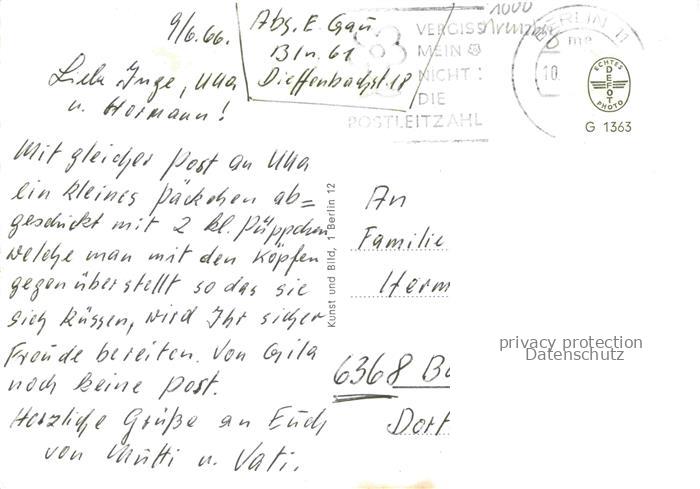 9/6.66.
Abs. E. Grau
Bln. 61
Dieffenbachst. 18
1000
VERGISS
MEIN
NICHT :
DIE
POSTLEITZAHL
BERLIN 11
me
10.
ECHTES
DEFOT
PHOTO
G 1363
Liebe Inge, Ulla
u. Hermann!
Mit gleicher Post an Ulla
ein kleines Päckchen ab=
geschickt mit 2 kl. Püppchen
welche man mit den Köpfen
gegenüberstellt so das sie
sich küssen, wird Ihr sicher
Freude bereiten. Von Gila
noch keine Post.
Herzliche Grüße an Euch
von Mutti u. Vati.
Kunst und Bild, 1 Berlin 12
An
Familie
Herm
6368 Ba
Dort
privacy protection
Datenschutz